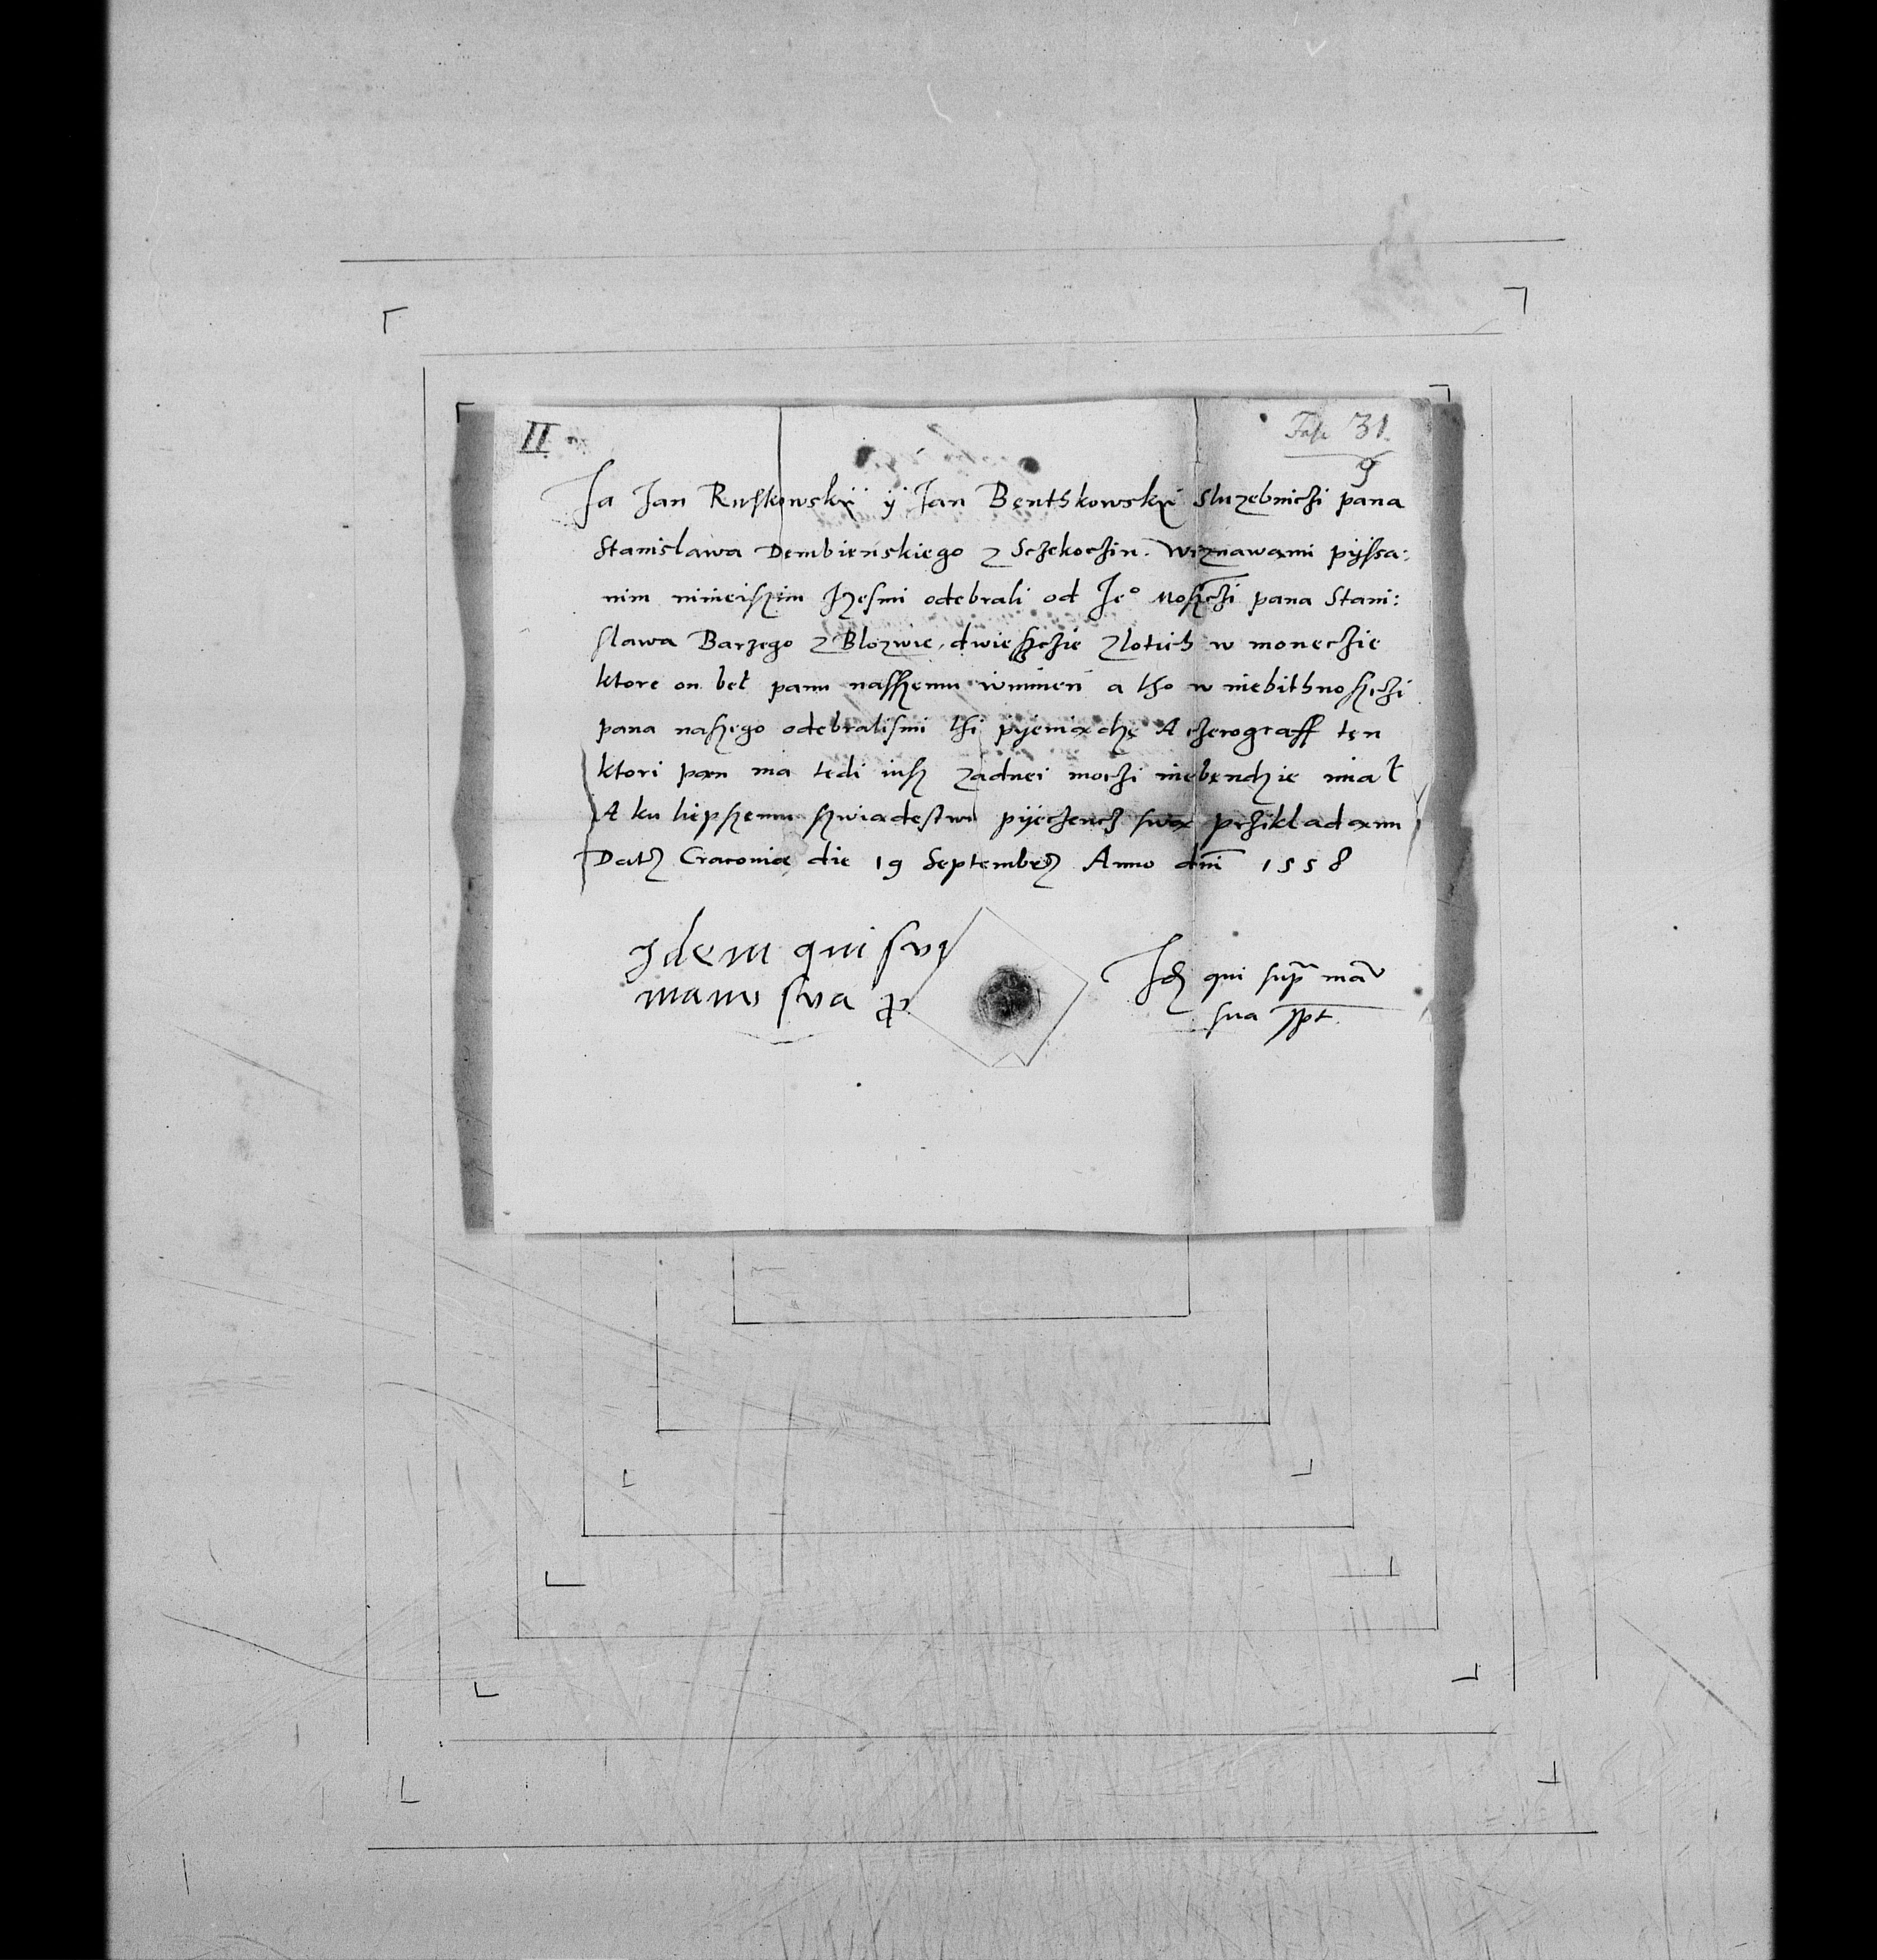 II
Fasc 31.
9
Ja Jan Ruskowskÿ ÿ Jan Bęnthkowskÿ Sluzebniczi pana
Stanislawa Dembieńskiego z Sczekoczin. Wiznawami pÿssa:
nim ninieiszim Jzesmi odebrali od Je° Moszczi pana Stani:
slawa Barzego z Blozwie, dwieszczie Zlotich w moneczie
ktore on beł panu naszemu winien a tho w niebithnosczi
pana naszego odebralismi thi pÿeniądzę A cherograff tęn
ktori pan ma tedi iusz żadnei moczi niebęndzie miał
A ku liepszemu swiadestwu pÿeczencz swą przikładamі
Datz Cracoviæ die 19 Septembrz Anno dnī 1558
Idem qui sup
manu sua p
Idz qui supr manu
sua sspt.